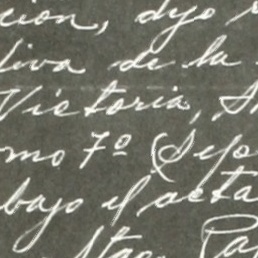 cion, dyo
diva de la
Victoria,
omo 7º (Sepo
bajo el acta